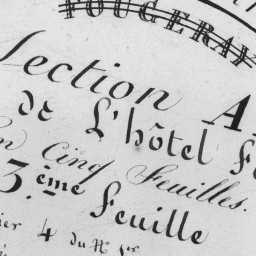 FOUGERAY
Section A
de L'hôtel
en Cinq Feuilles.
3ème Feuille
4 du N° 1er